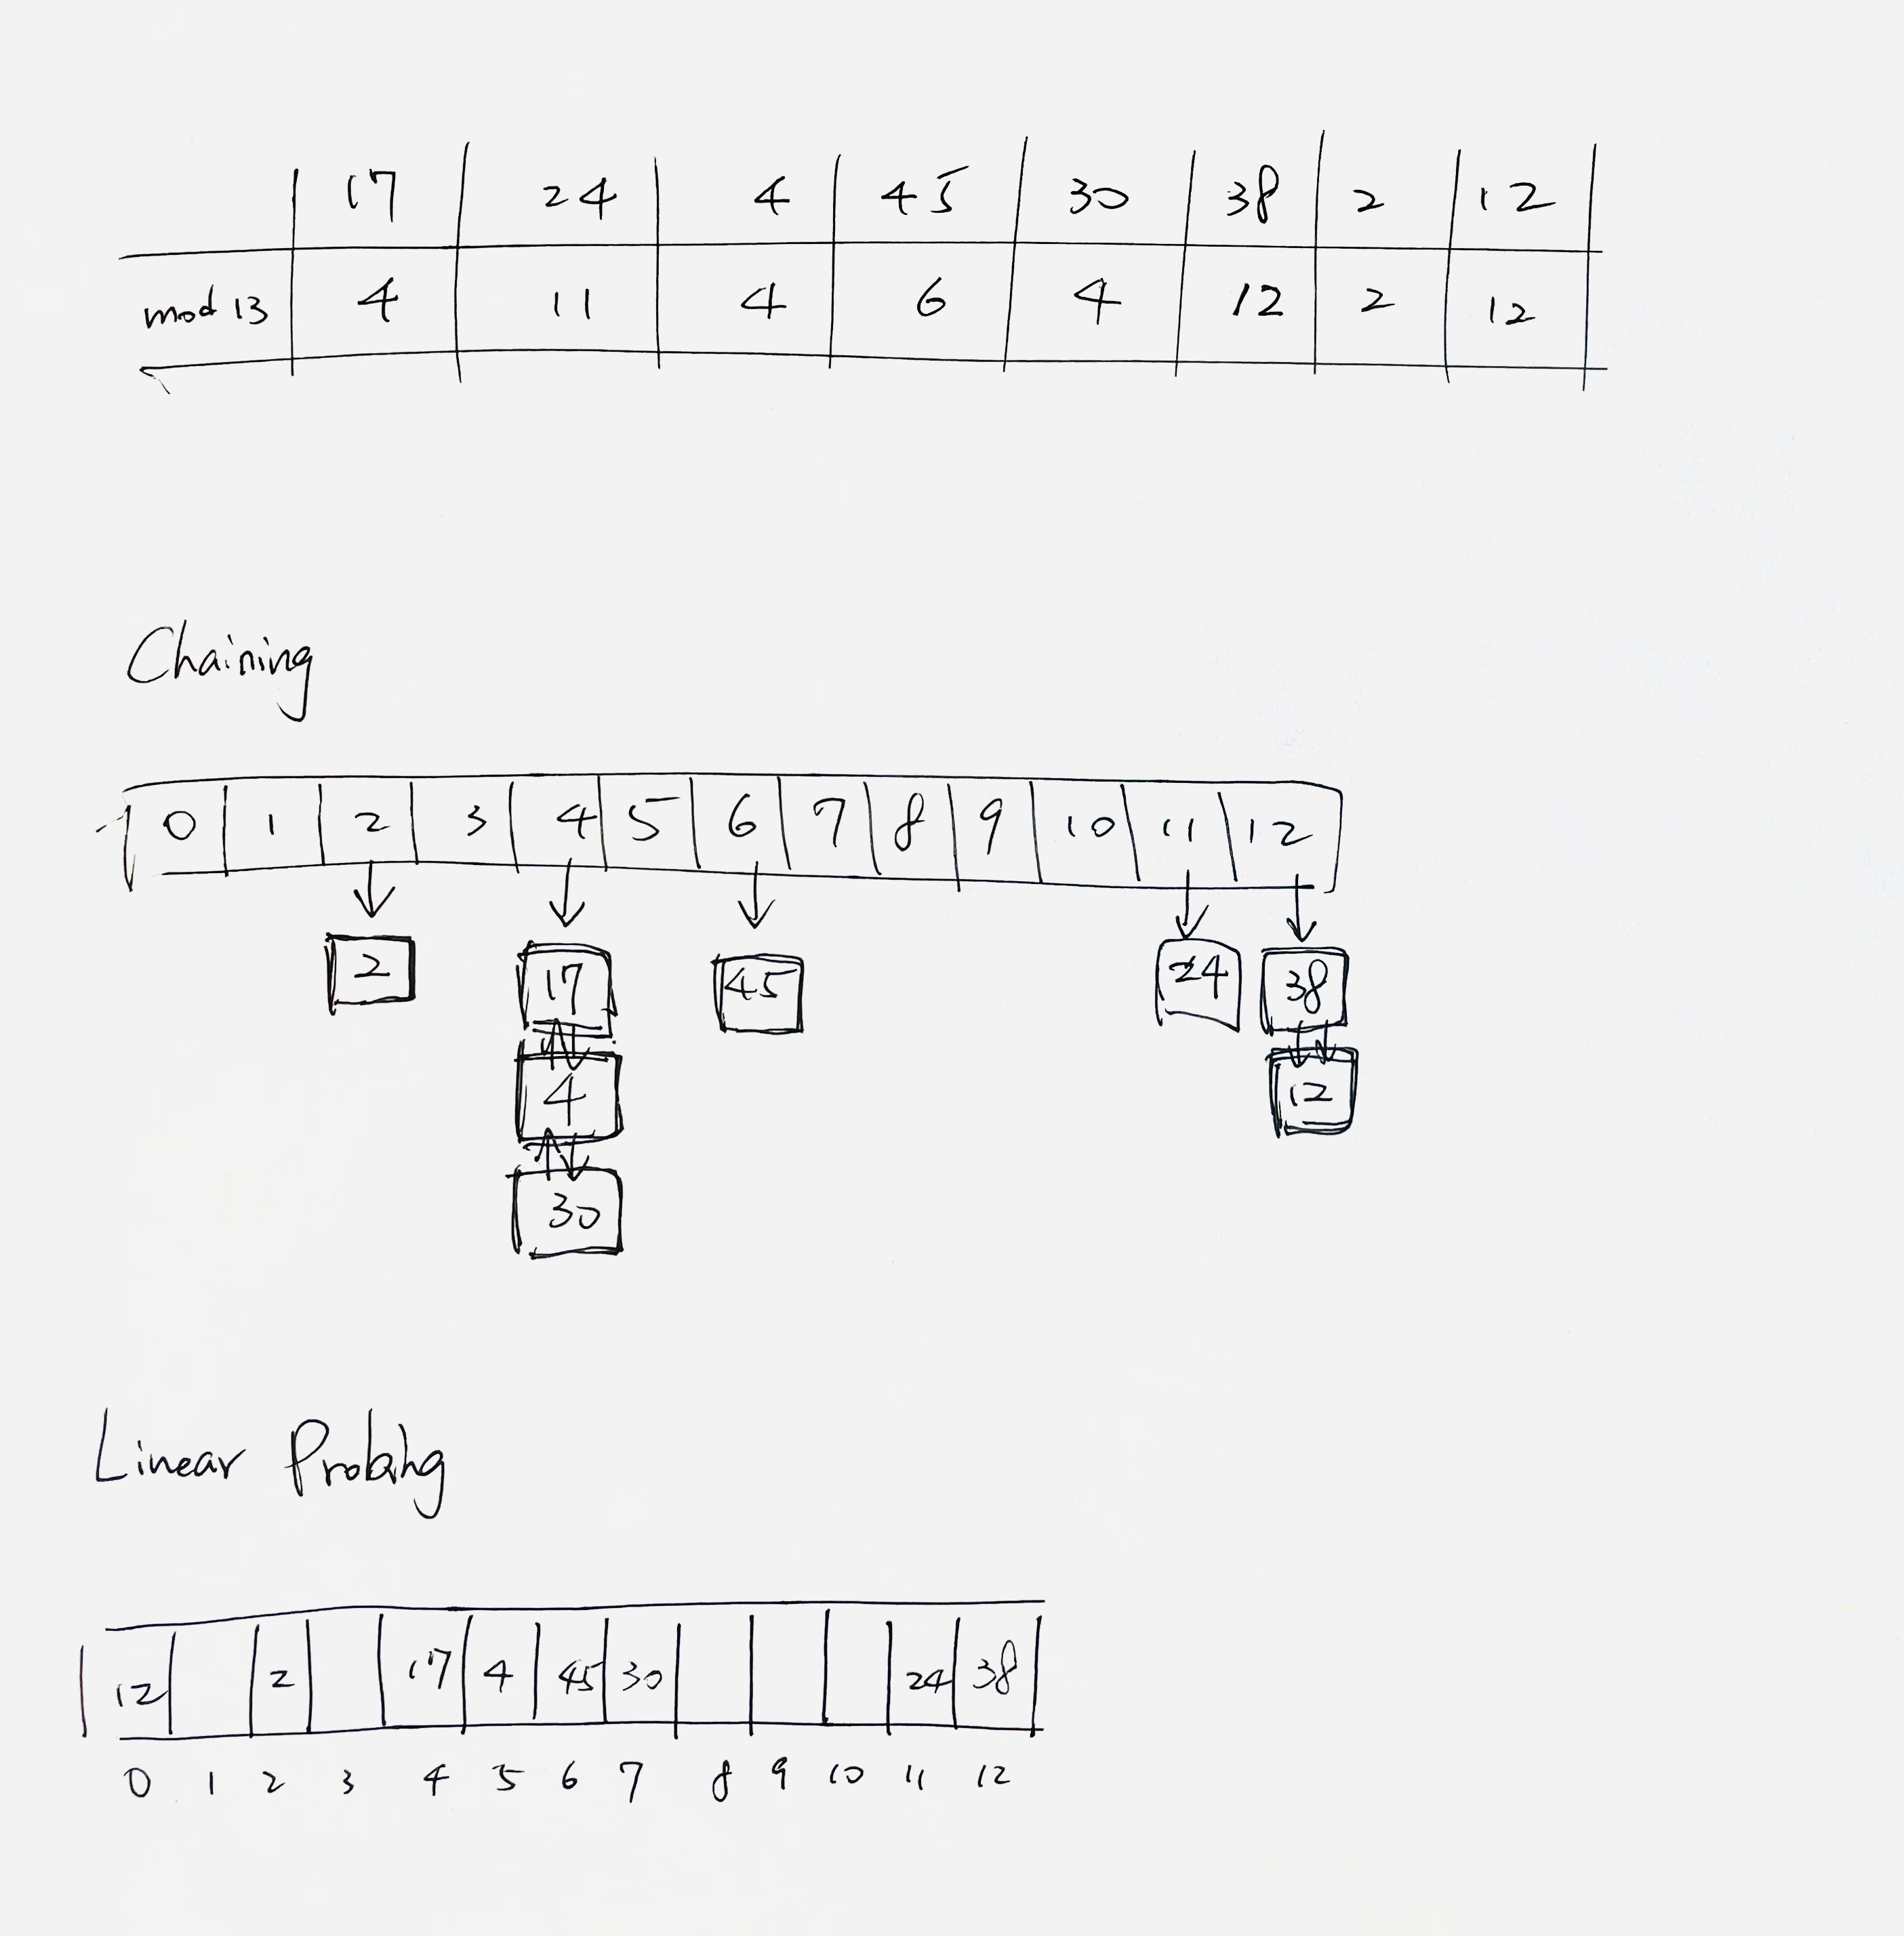 17 24 4 45 30 38 2 12
mod 13 4 11 4 6 4 12 2 12
Chaining
0 1 2 3 4 5 6 7 8 9 10 11 12
2 17 45 24 38
4 12
30
Linear Probing
12 2 17 4 45 30 24 38
0 1 2 3 4 5 6 7 8 9 10 11 12